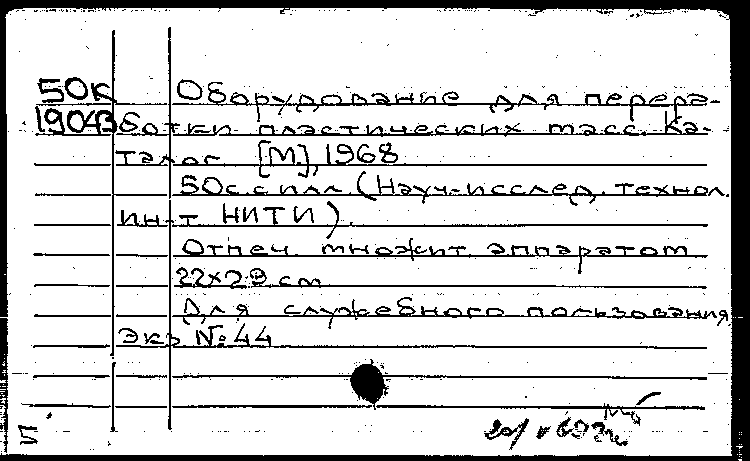 50К Оборудование для перера-
19043 ботки пластических масс. Ка-
талог [М], 1968
50с. с илл. (Науч.-исслед. технол.
ин-т НИТИ).
Отпеч. множит. аппаратом
22х29 см
Для служебного пользования
Экз. №44